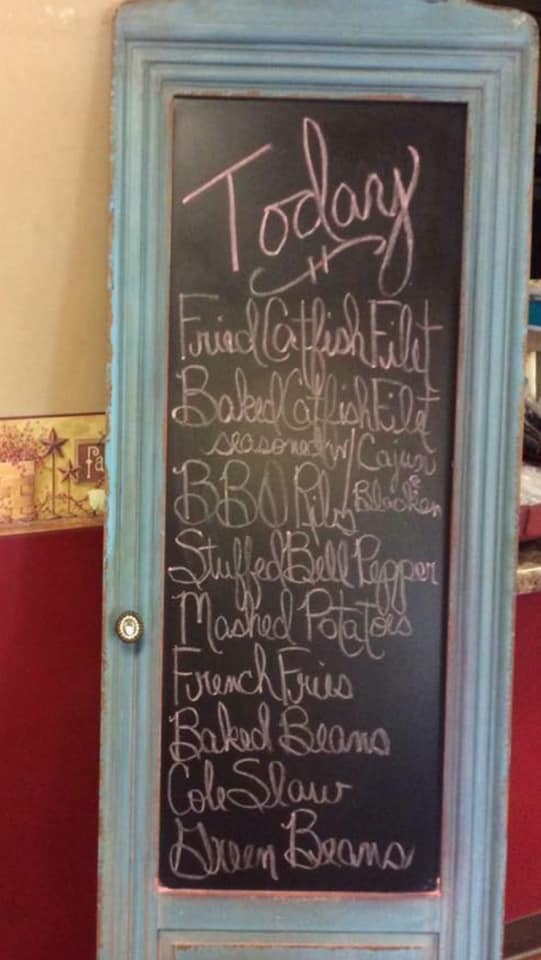 Today
Fried Catfish Filet
Baked Catfish Filet
seasoned w/ Cajun
& Blacken
BBQ Ribs
Stuffed Bell Pepper
Mashed Potatoes
French Fries
Baked Beans
Cole Slaw
Green Beans
fa